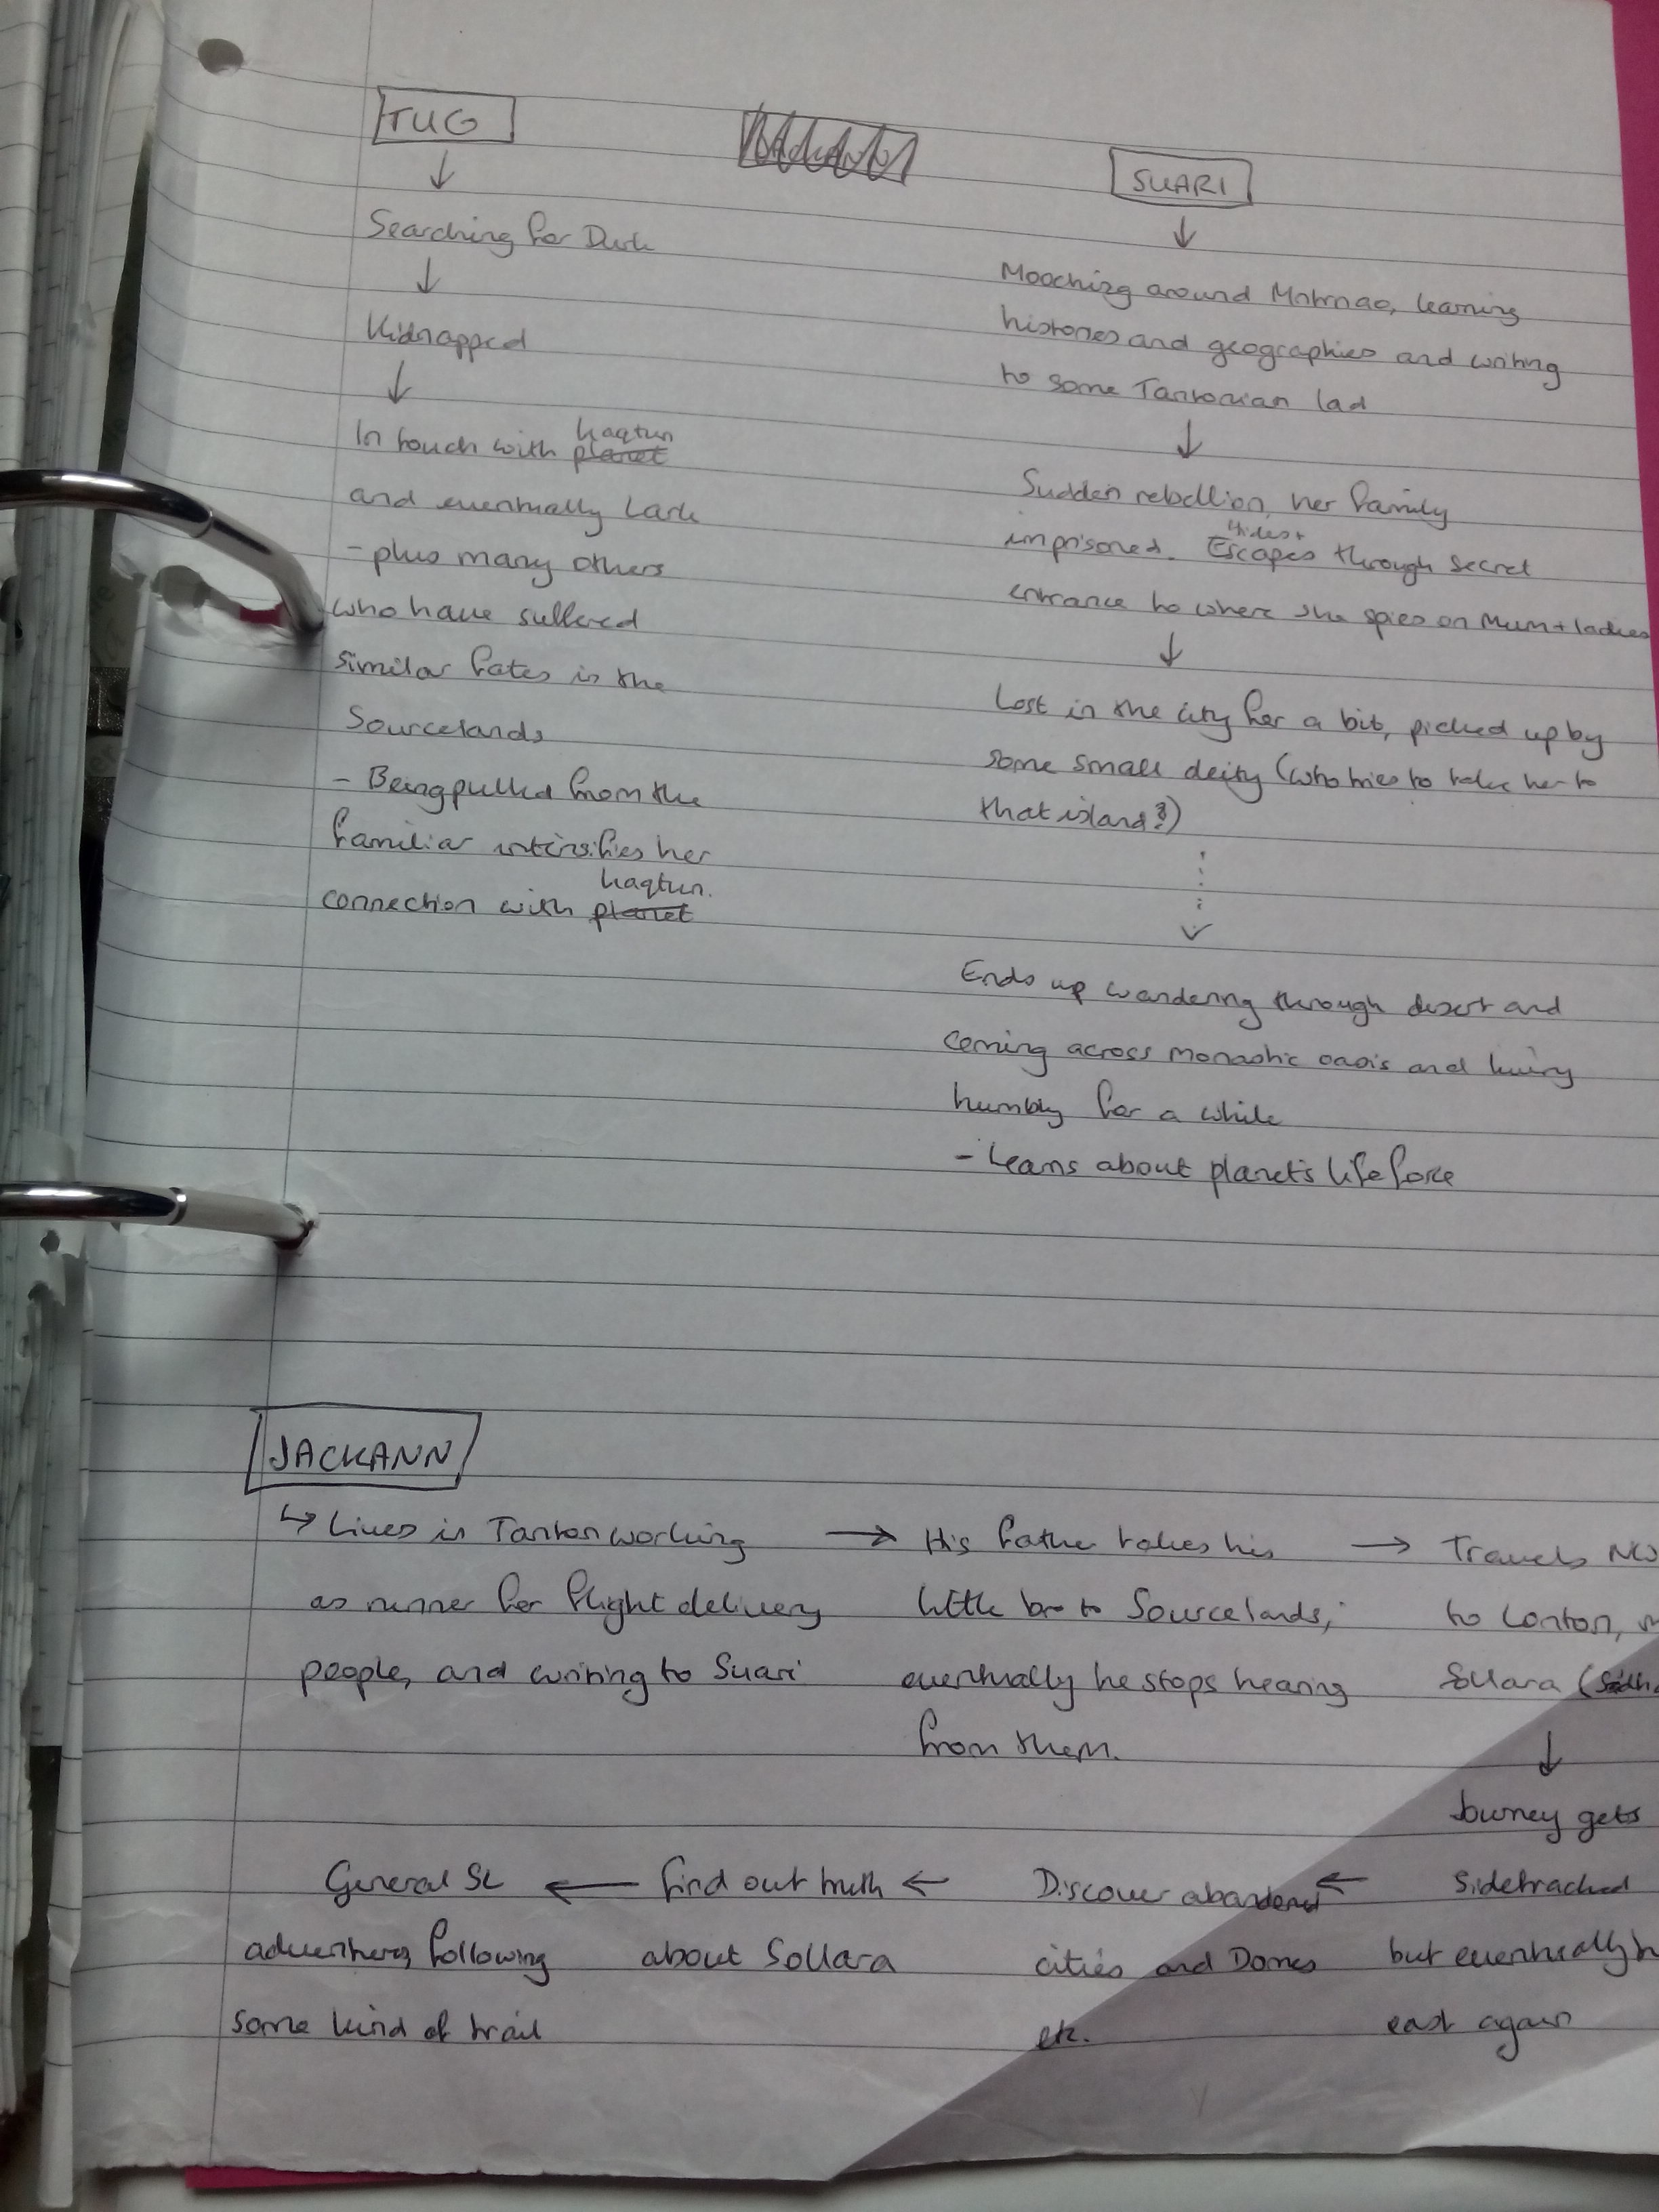 TUG
↓
Searching for Dusk
↓
Kidnapped
↓
haqtun
In touch with planet
and eventually Lark
- plus many others
who have suffered
similar fates in the
Sourcelands
- Being pulled from the
familiar intensifies her
haqtun.
connection with planet
SUARI
↓
Mooching around, learning
histories and geographies and writing
to some Tantonian lad
↓
Sudden rebellion, her family
Hides +
imprisoned. Escapes through secret
entrance to where she spies on Mum + ladies
↓
Lost in the city for a bit, picked up by
some small deity (who tries to take her to
that island?)
↓
Ends up wandering through desert and
coming across monastic oasis and living
humbly for a while
- Learns about planet's life force
JACKANN
↳ Lives in Tanton working
as runner for flight delivery
people, and writing to Suari
→ His father takes his
little bro to Sourcelands,
eventually he stops hearing
from them.
→ Travels NW
to Lonton,
Sollara
↓
Journey gets
sidetracked
but eventually
east again
← Discover abandoned
cities and Domes
etc.
← find out truth
about Sollara
← General SL
adventures, following
some kind of trail